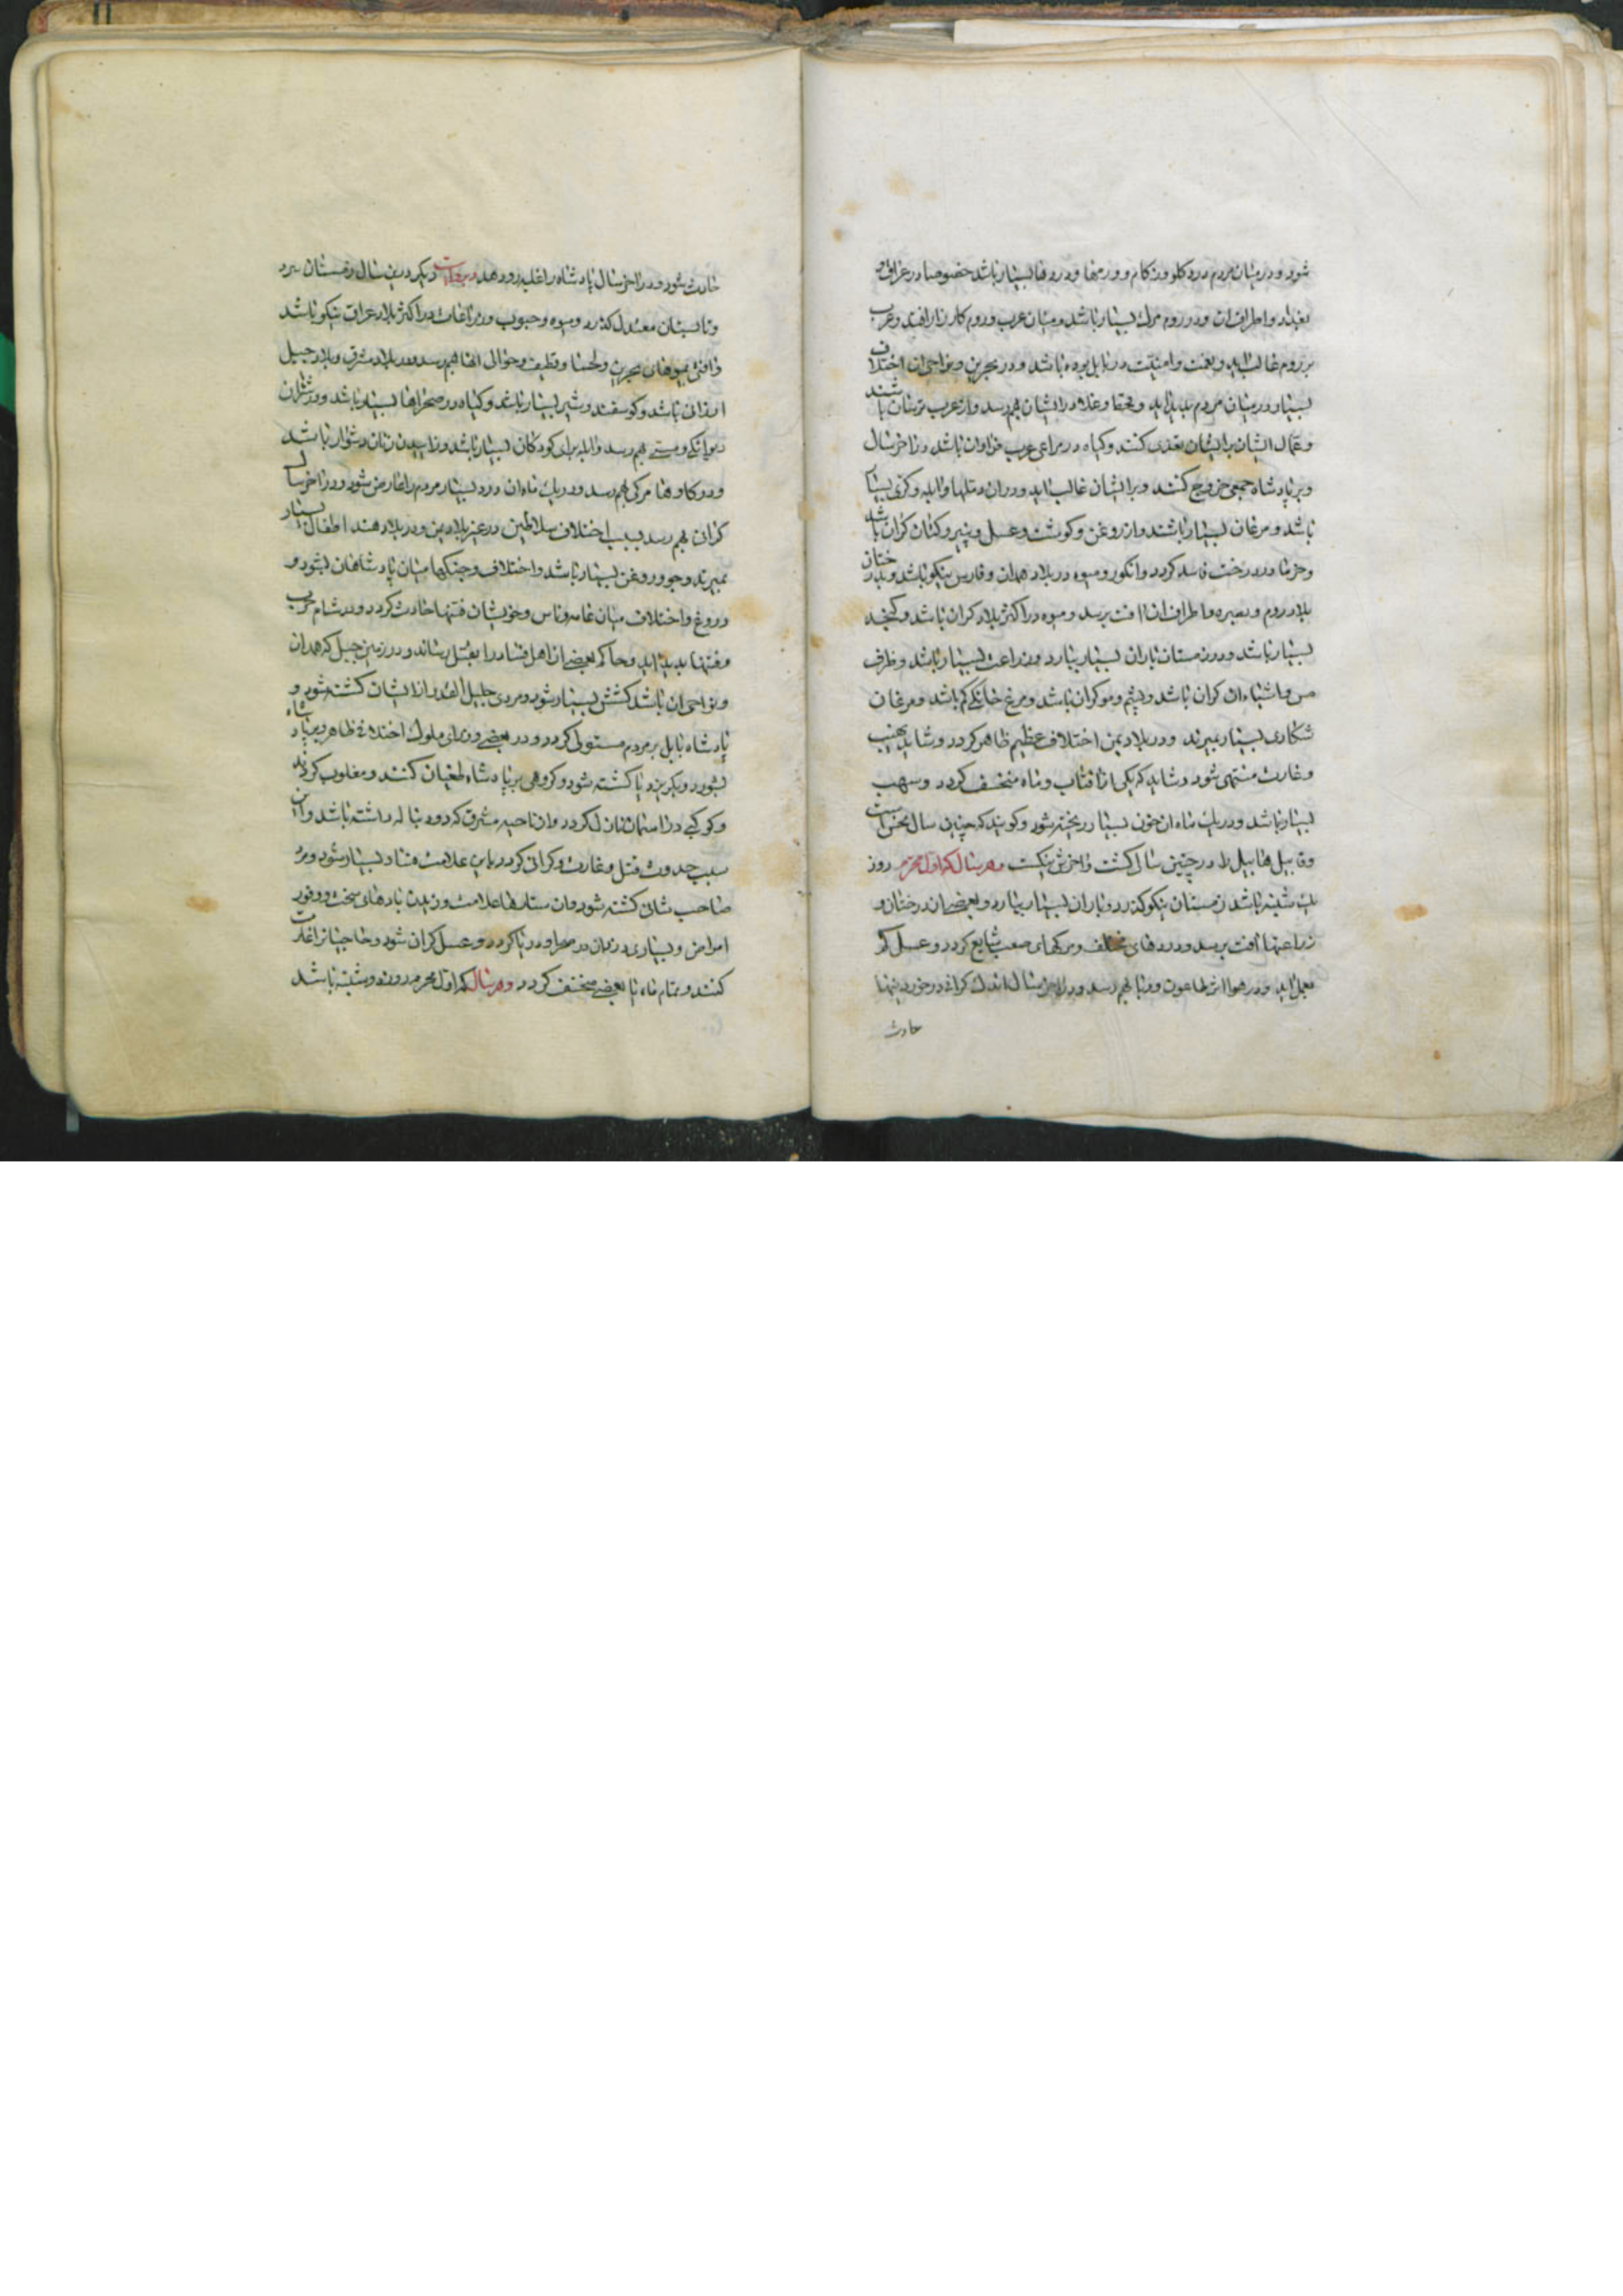 شود و در میان مردم درد کلو و زکام و ورمها و دردها بسیار باشد خصوصا در عراق و
بغداد و اطراف ان و در روم مرک بسیار باشد و میان عرب و روم کارزار افتد و عرب
بر روم غالب اید و نعمت و امنیت در بابل بوده باشد و در بحرین و نواحی ان اختلاف
بسیار در میان مردم پدید اید و قحط و غلا در ایشان بهم رسد و از عرب ترسان باشند
و عمال ایشان بر ایشان تعدی کنند و کیاه در مراعی عرب فراوان باشد در اخر سال
و بر پادشاه جمعی خروج کنند و بر ایشان غالب اید و در ان دملها و ابله و کری بسیار
باشد و مرغان بسیار باشند و از روغن و کوشت و عسل و پنیر و کتان کران باشد
و خرما در درخت فاسد کردد و انکور و میوه در بلاد همدان و فارس نیکو باشد و بدرختان
بلاد روم و بصره و اطراف ان افت برسد و میوه در اکثر بلاد کران باشد و کنجد
بسیار باشد و در زمستان باران بسیار ببارد و زراعت بسیار باشد و ظرف
مس و اشباه ان کران باشد و پشم و مو کران باشد و مرغ خانکی کم باشد و مرغان
شکاری بسیار بمیرند و در بلاد یمن اختلاف عظیم ظاهر کردد و شاید بنهب
و غارت منتهی شود و شاید که یکی از افتاب و ماه منخسف کردد و سهب
بسیار باشد و در یک ماه ان خون بسیار ریخته شود و کویند که چنین سال نحس است
و قابیل هابیل را در چنین سالی کشت و اخرش نیکست و هر سال که اول محرم روز
یک شنبه باشد زمستان نیکو کذرد و باران بسیار ببارد و بعضی از درختان و
زراعتها افت برسد و دردهای مختلف و مرکهای صعب شایع کردد و عسل کم
بعمل اید و در هوا اثر طاعون و وبا بهم رسد و در اخر سال اندک کرانی در خوردنیها
حادث
حادث شود و در اخر سال پادشاه را غلبه رو دهد و بروایت دیکر در این سال زمستان سرد
و تابستان معتدل کذرد و میوه و حبوب و زراعات در اکثر بلاد عراق نیکو باشد
و افتی بمیوهای بحرین و لحسا و قطیف و حوالی انها بهم رسد و در بلاد مشرق و بلاد جبیل
ارزانی باشد و کوسفند و شیر بسیار باشد و کیاه در صحراها بسیار باشد و در شتران
دیوانکی و مستی بهم رسد و ابله برای کودکان بسیار باشد و زاییدن زنان دشوار باشد
و در کاوها مرکی بهم رسد و در یک ماه ان درد بسیار مردم را عارض شود و در اخر سال
کرانی بهم رسد بسبب اختلاف سلاطین در غیر بلاد یمن و در بلاد هند اطفال بسیار
بمیرند و جو و روغن بسیار باشد و اختلاف و جنکها میان پادشاهان بشود و
دروغ و اختلاف میان عامه ناس و خویشان فتنها حادث کردد و در شام حرب
و فتنها پدید اید و حاکم بعضی از اهل فساد را بقتل رساند و در زمین جبل که همدان
و نواحی ان باشد کشش بسیار شود و مردی جلیل القدر از ایشان کشته شود و
پادشاه بابل بر مردم مستولی کردد و در بعضی وزرای ملوک اختلافی ظاهر و بر پادشاه
بشورد و بکریزد یا کشته شود و کروهی بر پادشاه طغیان کنند و مغلوب کردند
و کوکبی در اسمان نازل کردد و ان ناحیه مشرق که دو دنباله داشته باشد و ان
سبب حدوث قتل و غارت و کرانی کردد باین علامت فساد بسیار شود و مرد
صاحب شانی کشته شود و ان ستاره علامت وزیدن بادهای سخت و وفور
امراض و بسیاری دزدان در صحرا و دریا کردد و عسل کران شود و حاجیانرا غارت
کنند و تمام ماه یا بعضی منخسف کردد و هر سال که اول محرم روز دوشنبه باشد